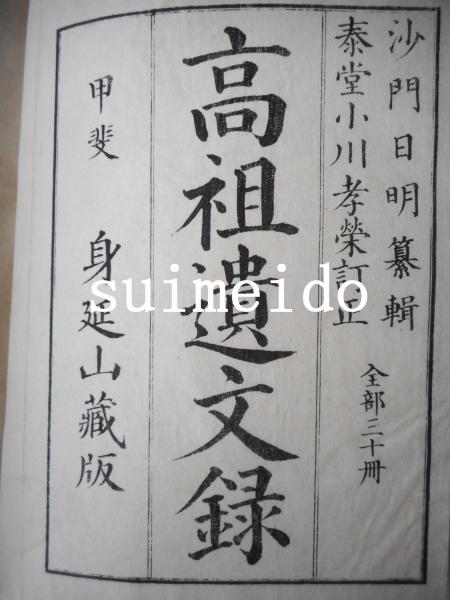 沙門日明纂輯
泰堂小川孝榮訂正
全部三十冊
高祖遺文録
甲斐 身延山藏版
suimeido